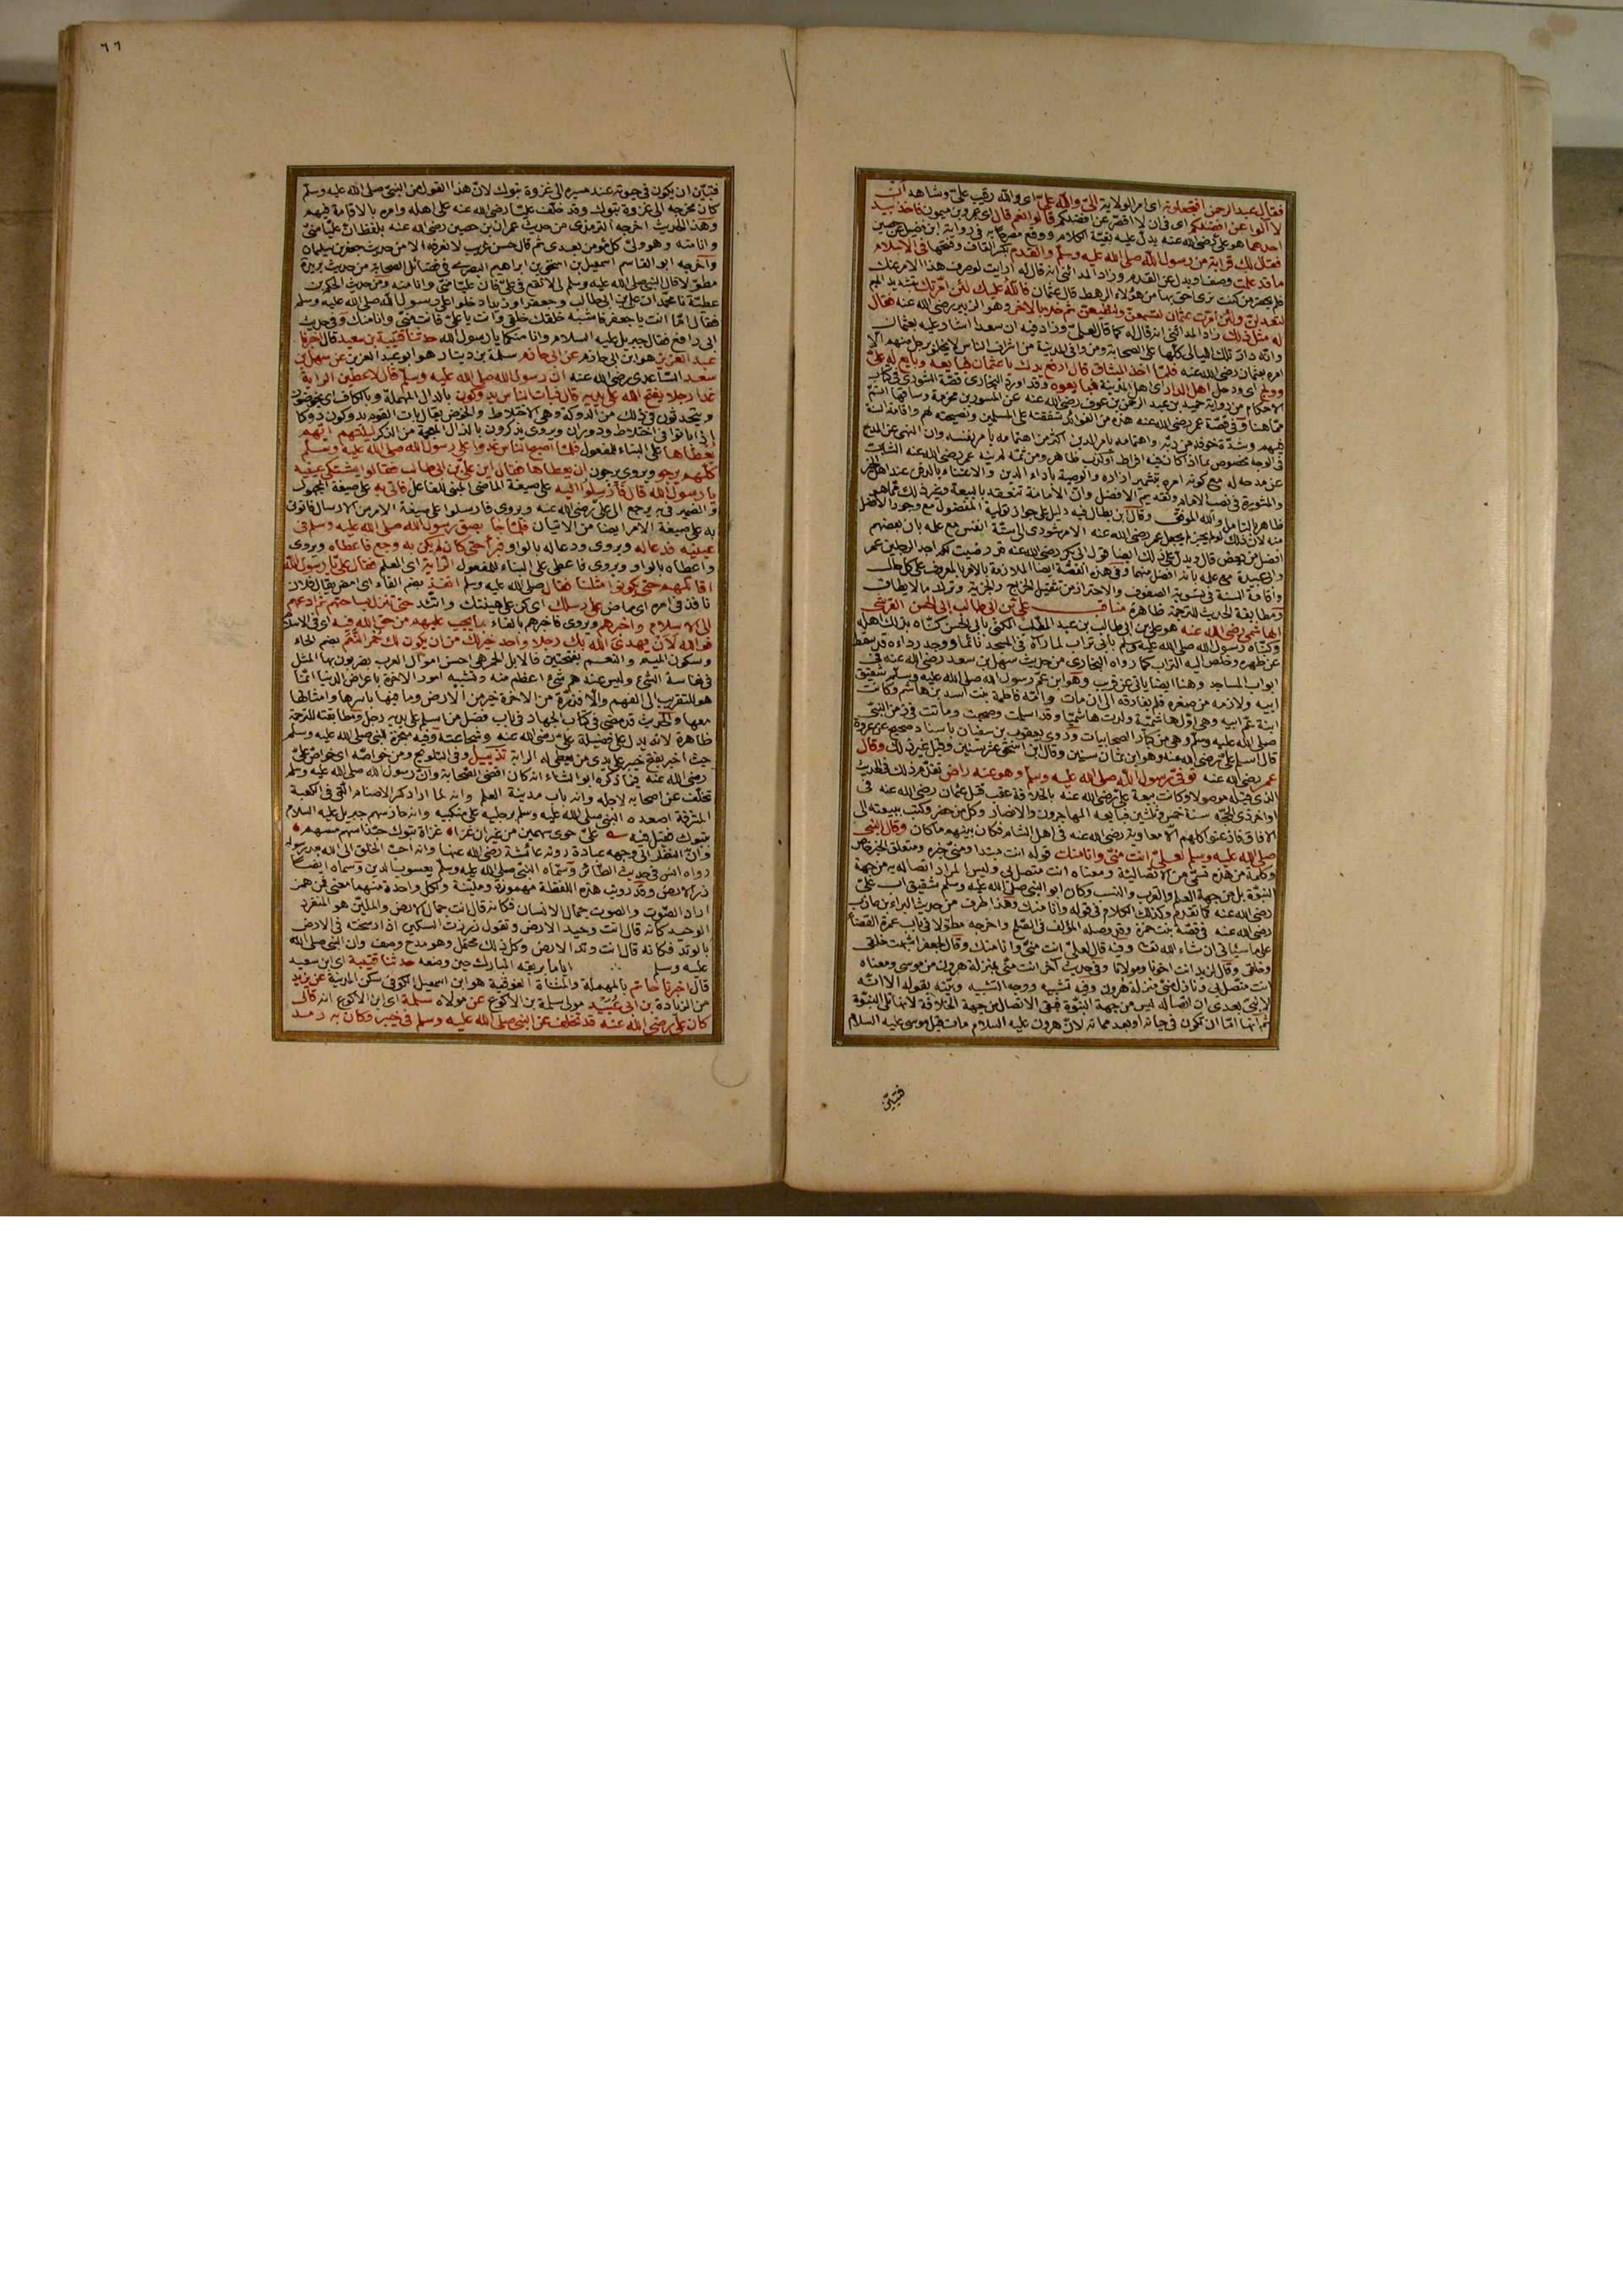 فقال عبد الرحمن افتجعلونه اى امر الولاية الىّ والله علىّ اى والله رقيب علىّ وشاهد ان
لا آلوا عن افضلكم اى فى ان لا اقصر عن افضلكم قالوا نعم قال اى عمرو بن ميمون فاخذ بيد
احدهما هو على رضى الله عنه يدل عليه بقية الكلام ووقع مصرحا به فى رواية ابن فضيل عن حصين
فقال لك قرابة من رسول الله صلى الله عليه وسلم والقدم بكسر القاف وفتحها فى الاسلام
ما قد علمت وصف او بدل عن القدم وزاد المدائنى انه قال له ارايت لو صرف هذا الامر عنك
فلم تحضر من كنت ترى احق بها من هؤلاء الرهط قال عثمان فالله عليك لئن امّرتك بتشديد الميم
لتعدلن ولئن امّرت عثمان لتسمعنّ ولتطيعنّ ثم خلا بالاخر وهو الزبير رضى الله عنه فقال
له مثل ذلك زاد المدائنى انه قال له كما قال لعلىّ وزاد فيه ان سعدا اشار عليه بعثمان
وانه دار تلك الليالى كلها على الصحابة ومن وافى المدينة من اشراف الناس لا يخلو برجل منهم الا
امره بعثمان رضى الله عنه فلما اخذ الميثاق قال ارفع يدك يا عثمان فبايعه وبايع له علىّ
وولج اى ودخل اهل الدار اى اهل المدينة فبايعوه وقد اورد البخارى قصة الشورى فى كتاب
الاحكام من رواية حميد بن عبد الرحمن بن عوف رضى الله عنه عن المسور بن مخرمة وساقها اتم
مما هنا وفى قصة عمر رضى الله عنه هذه من الفوائد شفقته على المسلمين ونصيحته لهم واقامة السنة
فيهم وشدة خوفه من ربه واهتمامه بامر الدين اكثر من اهتمامه بامر نفسه وان النهى عن المدح
فى الوجه مخصوص بما اذا كان فيه افراط او كذب ظاهر ومن ثمة لم ينه عمر رضى الله عنه الشاب
عن مدحه له مع كونه امره بتشمير ازاره والوصية باداء الدين والاعتناء بالدفن عند اهل الخير
والمشورة فى نصب الامام وتقديم الافضل وان الامامة تنعقد بالبيعة وغير ذلك مما هو
ظاهر بالتامل والله الموفق وقال ابن بطال فيه دليل على جواز تولية المفضول مع وجود الافضل
منه لان ذلك لو لم يجز لم يجعل عمر رضى الله عنه الامر شورى الى ستة انفس مع علمه بان بعضهم
افضل من بعض قال ويدل على ذلك ايضا قول ابى بكر رضى الله عنه قد رضيت لكم احد الرجلين عمر
وابى عبيدة مع علمه بانه افضل منهما وفى هذه القصة ايضا الملازمة بالامر بالمعروف على كل حال
واقامة السنة فى تسوية الصفوف والاحتراز من تثقيل الخراج والجزية وترك ما لا يطاق
ومطابقة الحديث للترجمة ظاهرة مناقب على بن ابى طالب ابى الحسن القرشى
الهاشمى رضى الله عنه هو على بن ابى طالب بن عبد المطلب المكنى بابى الحسن كناه بذلك اهله
وكناه رسول الله صلى الله عليه وسلم بابى تراب لما رآه فى المسجد نائما ووجد رداءه قد سقط
عن ظهره وخلص اليه التراب كما رواه البخارى من حديث سهل بن سعد رضى الله عنه فى
ابواب المساجد وهنا ايضا ياتى عن قريب وهو ابن عم رسول الله صلى الله عليه وسلم شقيق
ابيه ولازمه من صغره فلم يفارقه الى ان مات وامه فاطمة بنت اسد بن هاشم وكانت
ابنة عم ابيه وهى اول هاشمية ولدت هاشميا وقد اسلمت وصحبت وماتت فى زمن النبى
صلى الله عليه وسلم وهى من كبار الصحابيات وروى يعقوب بن سفيان باسناد صحيح عن عروة
قال اسلم على رضى الله عنه وهو ابن ثمان سنين وقال ابن اسحق عشر سنين وقيل غير ذلك وقال
عمر رضى الله عنه توفى رسول الله صلى الله عليه وسلم وهو عنه راض تقدم ذلك فى الحديث
الذى قبله موصولا وكانت بيعة على رضى الله عنه بالخلافة عقب قتل عثمان رضى الله عنه فى
اواخر ذى الحجة سنة خمس وثلثين فبايعه المهاجرون والانصار وكل من حضر وكتب ببيعته الى
الافاق فاذعنوا كلهم الا معاوية رضى الله عنه فى اهل الشام فكان بينهم ما كان وقال النبى
صلى الله عليه وسلم لعلىّ انت منى وانا منك قوله انت مبتدا ومنى خبره ومتعلق الخبر خاص
وكلمة من هذه تسمى من الاتصالية ومعناه انت متصل بى وليس المراد اتصاله به من جهة
النبوة بل من جهة العلم والقرب والنسب وكان ابو النبى صلى الله عليه وسلم شقيق اب علىّ
رضى الله عنه كما تقدم وكذلك الكلام فى قوله وانا منك وهذا طرف من حديث البراء بن عازب
رضى الله عنه فى قصة بنت حمزة وقد وصله المؤلف فى الصلح واخرجه مطولا فى باب عمرة القضاء
على ما سياتى ان شاء الله تعالى وفيه قال لعلىّ انت منى وانا منك وقال لجعفر اشبهت خلقى
وخلقى وقال لزيد انت اخونا ومولانا وفى حديث اخر انت منى بمنزلة هرون من موسى ومعناه
انت متصل بى ونازل منى منزلة هرون وفيه تشبيه ووجه التشبيه وبينه بقوله الا انه
لا نبى بعدى ان اتصاله ليس من جهة النبوة فبقى الاتصال من جهة الخلافة لانها تلى النبوة
ثم انها اما ان تكون فى حياته او بعد مماته لان هرون عليه السلام مات قبل موسى عليه السلام
فتبين
٦٦
فتبين ان يكون فى حيوته عند مسيره الى غزوة تبوك لان هذا القول من النبى صلى الله عليه وسلم
كان مخرجه الى غزوة تبوك وقد خلف عليا رضى الله عنه على اهله وامره بالاقامة فيهم
وهذا الحديث اخرجه الترمذى من حديث عمران بن حصين رضى الله عنه بلفظ ان عليا منى
وانا منه وهو ولى كل مؤمن بعدى ثم قال حسن غريب لا نعرفه الا من حديث جعفر بن سليمان
واخرجه ابو القاسم اسمعيل بن اسحق بن ابراهيم البصرى فى فضائل الصحابة من حديث بريرة
مطولا قال النبى صلى الله عليه وسلم لى لا تقع فى علىّ فان عليا منى وانا منه ومن حديث الحكم بن
عطية نا محمد ان على بن ابى طالب وجعفرا وزيدا دخلوا على رسول الله صلى الله عليه وسلم
فقال اما انت يا جعفر فاشبه خلقك خلقى وانت يا علىّ فانت منى وانا منك وفى حديث
ابى رافع فقال جبريل عليه السلام وانا منكما يا رسول الله حدثنا قتيبة بن سعيد قال اخبرنا
عبد العزيز هو ابن ابى حازم عن ابى حازم سلمة بن دينار هو ابو عبد العزيز عن سهل بن
سعد الساعدى رضى الله عنه ان رسول الله صلى الله عليه وسلم قال لاعطين الراية
غدا رجلا يفتح الله على يديه قال فبات الناس يدوكون بالدال المهملة وبالكاف اى يخوضون
ويتحدثون فى ذلك من الدوكة وهى الاختلاط والخوض يقال بات القوم يدوكون دوكا
اذا باتوا فى اختلاط ودوران ويروى يذكرون بالذال المعجمة من الذكر ليلتهم ايهم
يعطاها على البناء للمفعول فلما اصبح الناس غدوا على رسول الله صلى الله عليه وسلم
كلهم يرجو ويروى يرجون ان يعطاها فقال اين على بن ابى طالب فقالوا يشتكى عينيه
يا رسول الله قال فارسلوا اليه على صيغة الماضى المبنى للفاعل فاتى به على صيغة المجهول
والضمير فى به يرجع الى على رضى الله عنه ويروى فارسلوا على صيغة الامر من الارسال فاتونى
به على صيغة الامر ايضا من الاتيان فلما جاء بصق رسول الله صلى الله عليه وسلم فى
عينيه فدعا له ويروى ودعا له بالواو فبرأ حتى كان لم يكن به وجع فاعطاه ويروى
واعطاه بالواو ويروى فاعطى على البناء للمفعول الراية اى العلم فقال علىّ يا رسول الله
اقاتلهم حتى يكونوا مثلنا فقال صلى الله عليه وسلم انفذ بضم الفاء اى امض يقال فلان
نافذ فى امره اى ماض على رسلك اى كن على هينتك واتئد حتى تنزل بساحتهم ثم ادعهم
الى الاسلام واخبرهم ويروى فاخبرهم بالفاء بما يجب عليهم من حق الله فيه اى فى الاسلام
فوالله لان يهدى الله بك رجلا واحدا خير لك من ان يكون لك حمر النعم بضم الحاء
وسكون الميم والنعم بفتحتين فالابل الحمر هى احسن اموال العرب يضربون بها المثل
فى نفاسة الشىء وليس عندهم شىء اعظم منه وتشبيه امور الاخرة باعراض الدنيا انما
هو للتقريب الى الفهم والا فذرة من الاخرة خير من الارض وما فيها باسرها وامثالها
معها والحديث قد مضى فى كتاب الجهاد فى باب فضل من اسلم على يديه رجل ومطابقته للترجمة
ظاهرة لانه يدل على فضيلة على رضى الله عنه وشجاعته وفيه معجزة للنبى صلى الله عليه وسلم
حيث اخبر بفتح خيبر على يدى من يعطى له الراية تذييل وفى التلويح ومن خواصه اى خواص علىّ
رضى الله عنه فيما ذكره ابو الثناء انه كان اقضى الصحابة وان رسول الله صلى الله عليه وسلم
تخلف عن اصحابه لاجله وانه باب مدينة العلم وانه لما اراد كسر الاصنام التى فى الكعبة
المشرفة اصعده النبى صلى الله عليه وسلم برجليه على منكبيه وانه حاز سهم جبريل عليه السلام
بتبوك فقيل فيه علىّ حوى سهمين من غير ان غزا غزاة تبوك حبذا سهم مسهم
وان النظر الى وجهه عبادة روته عائشة رضى الله عنها وانه احب الخلق الى الله بعد رسوله
رواه انس فى حديث الطائر وسماه النبى صلى الله عليه وسلم يعسوب الدين وسماه ايضا
زر الارض وقد رويت هذه اللفظة مهموزة وملينة ولكل واحدة منهما معنى فمن همز
اراد الصوت والصوت جمال الانسان فكانه قال انت جمال الارض والملين هو المنفرد
الوحيد كانه قال انت وحيد الارض وتقول زررت السكين اذا رسخته فى الارض
بالوتد فكانه قال انت وتد الارض وكل ذلك محتمل وهو مدح ووصف وان النبى صلى الله
عليه وسلم حين وضعه حدثنا قتيبة اى ابن سعيد
قال اخبرنا حاتم بالمهملة والمثناة الفوقية هو ابن اسمعيل الكوفى سكن المدينة عن يزيد
من الزيادة بن ابى عبيد مولى سلمة بن الاكوع عن مولاه سلمة اى ابن الاكوع انه قال
كان على رضى الله عنه قد تخلف عن النبى صلى الله عليه وسلم فى خيبر وكان به رمد